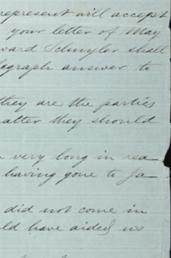 represent will accept
your letter of May
ward Schuyler shall
legraph answer to
they are the parties
atter they should
very long in rea
having gone to Ja
did not come in
ld have aided us